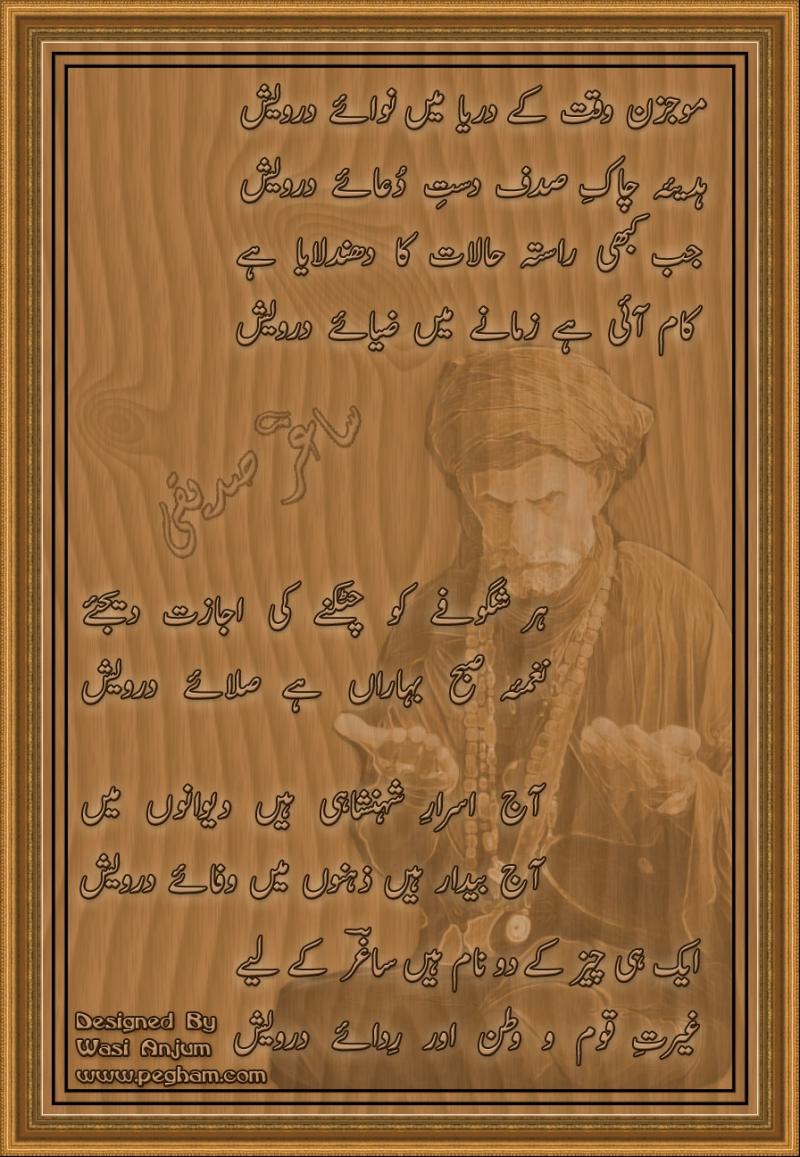 موجزن وقت کے دریا میں نوائے درویش
ہدیۂ چاکِ صدف دستِ دُعائے درویش
جب کبھی راستہ حالات کا دھندلایا ہے
کام آئی ہے زمانے میں ضیائے درویش
ساغر صدیقی
ہر شگوفے کو چٹکنے کی اجازت دیجئے
نغمۂ صبح بہاراں ہے صلائے درویش
آج اسرارِ شہنشاہی ہیں دیوانوں میں
آج بیدار ہیں ذہنوں میں وفائے درویش
ایک ہی چیز کے دو نام ہیں ساغرؔ کے لیے
غیرتِ قوم و وطن اور رِدائے درویش
Designed By
Wasi Anjum
www.pegham.com